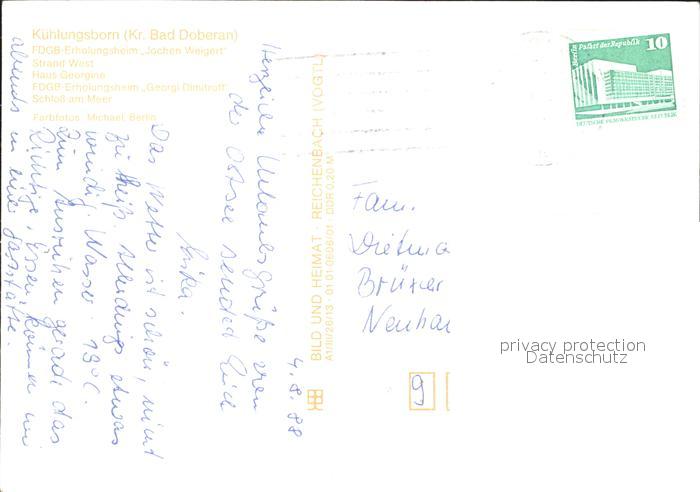 Kühlungsborn (Kr. Bad Doberan)
FDGB-Erholungsheim „Jochen Weigert"
Strand West
Haus Georgine
FDGB-Erholungsheim „Georgi Dimitroff"
Schloß am Meer
Farbfotos: Michael, Berlin
4.8.88
Herzliche Urlaubsgrüße von
der Ostsee sendet Euch
Erika.
Das Wetter ist schön, nicht
zu heiß. Allerdings etwas
windig. Wasser 19°C.
Zum Ausruhen gerade das
Richtige. Essen können wir
abends in einer Gaststätte.
BILD UND HEIMAT · REICHENBACH (VOGTL)
A1/III/26/13 · 01 01 0606/01 · DDR 0,20 M
Berlin Palast der Republik 10
DEUTSCHE DEMOKRATISCHE REPUBLIK
Fam.
Dietma
Brüxer
Neuhau
9
privacy protection
Datenschutz